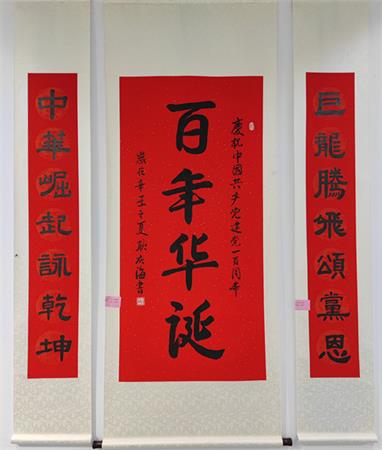 巨龍騰飛頌黨恩
慶祝中国共产党建党一百周年
百年华诞
嵗在辛丑之夏 耿 海書
中華崛起詠乾坤